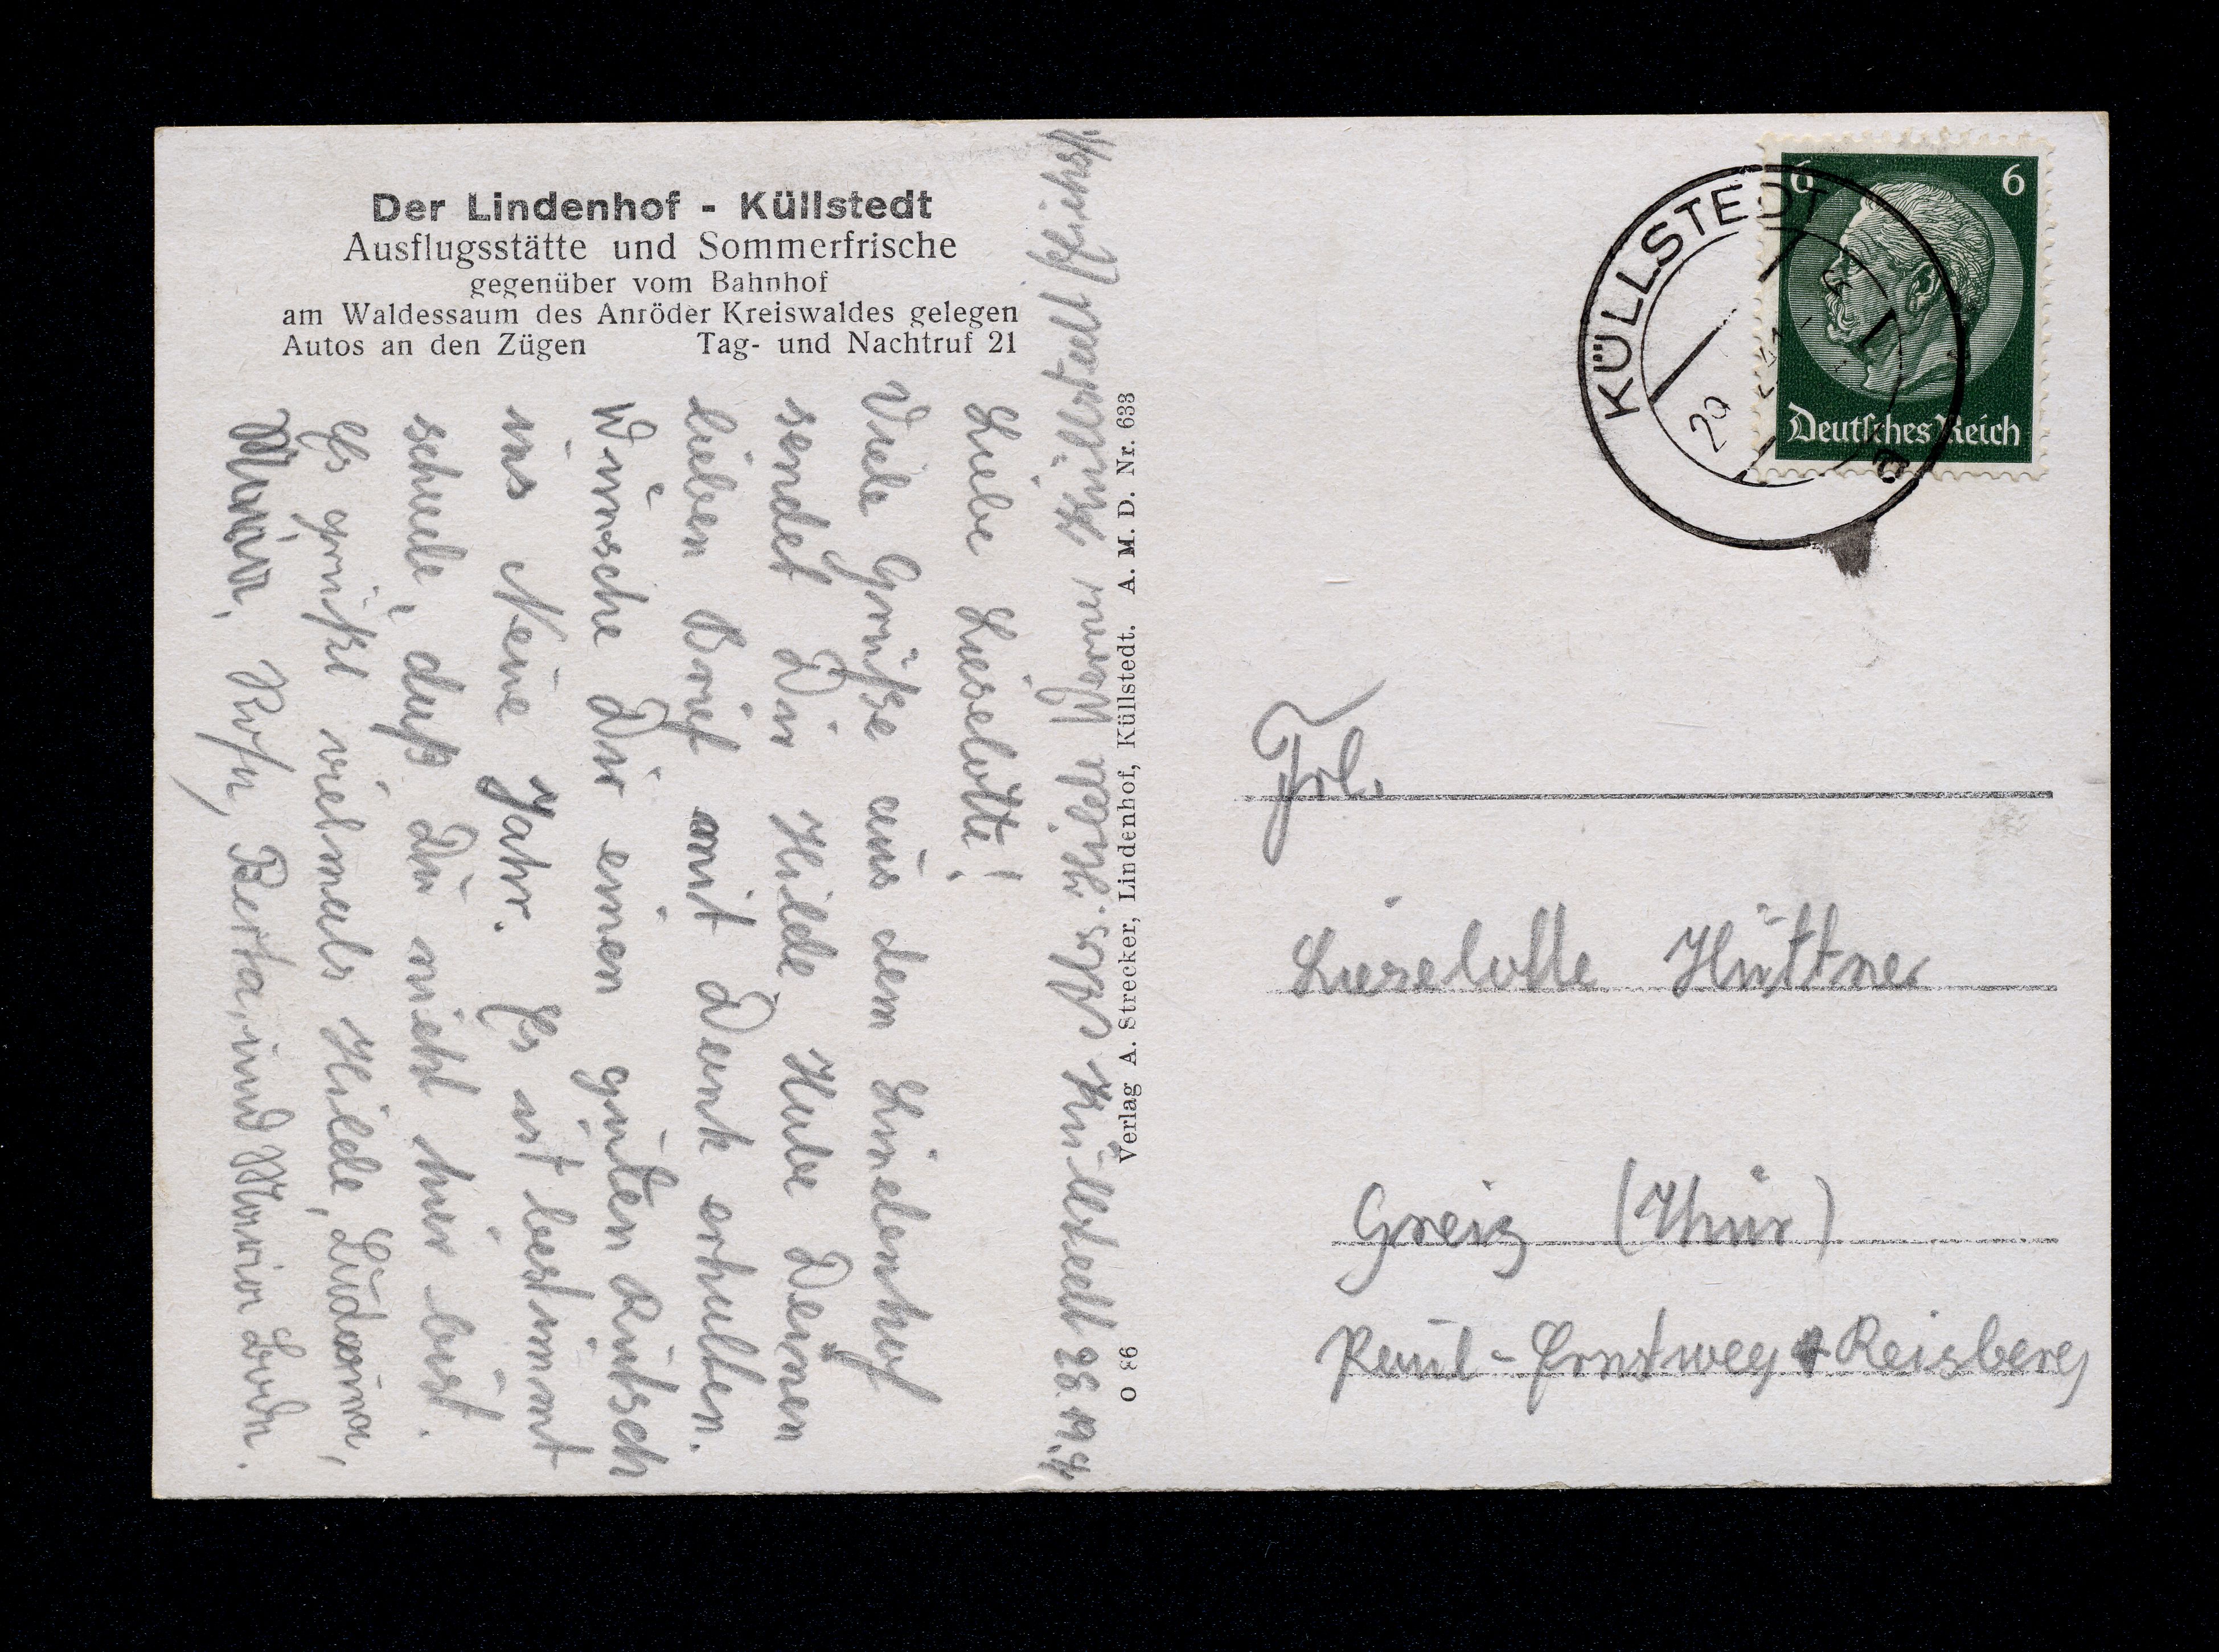 Der Lindenhof - Küllstedt
Ausflugsstätte und Sommerfrische
gegenüber vom Bahnhof
am Waldessaum des Anröder Kreiswaldes gelegen
Autos an den Zügen Tag- und Nachtruf 21
Liebe Lieselotte!
Viele Grüße aus dem Lindenhof
sendet Dir Hilde Habe Deinen
lieben Brief mit Dank erhalten.
Wünsche Dir einen guten Rutsch
ins Neue Jahr. Es ist bestimmt
schade, daß Du nicht hier bist.
Es grüßt vielmals Hilde,
Maria, Berta, und Maria
Abs. Hilde Werner Küllstedt (Eichsf.
Verlag A. Strecker, Lindenhof, Küllstedt. A. M. D. Nr. 633
O 86
KÜLLSTEDT
20
a
6 6
Deutsches Reich
Frl.
Lieselotte Hüttner
Greiz (Thür)
Paul-Ernstweg Reisberg